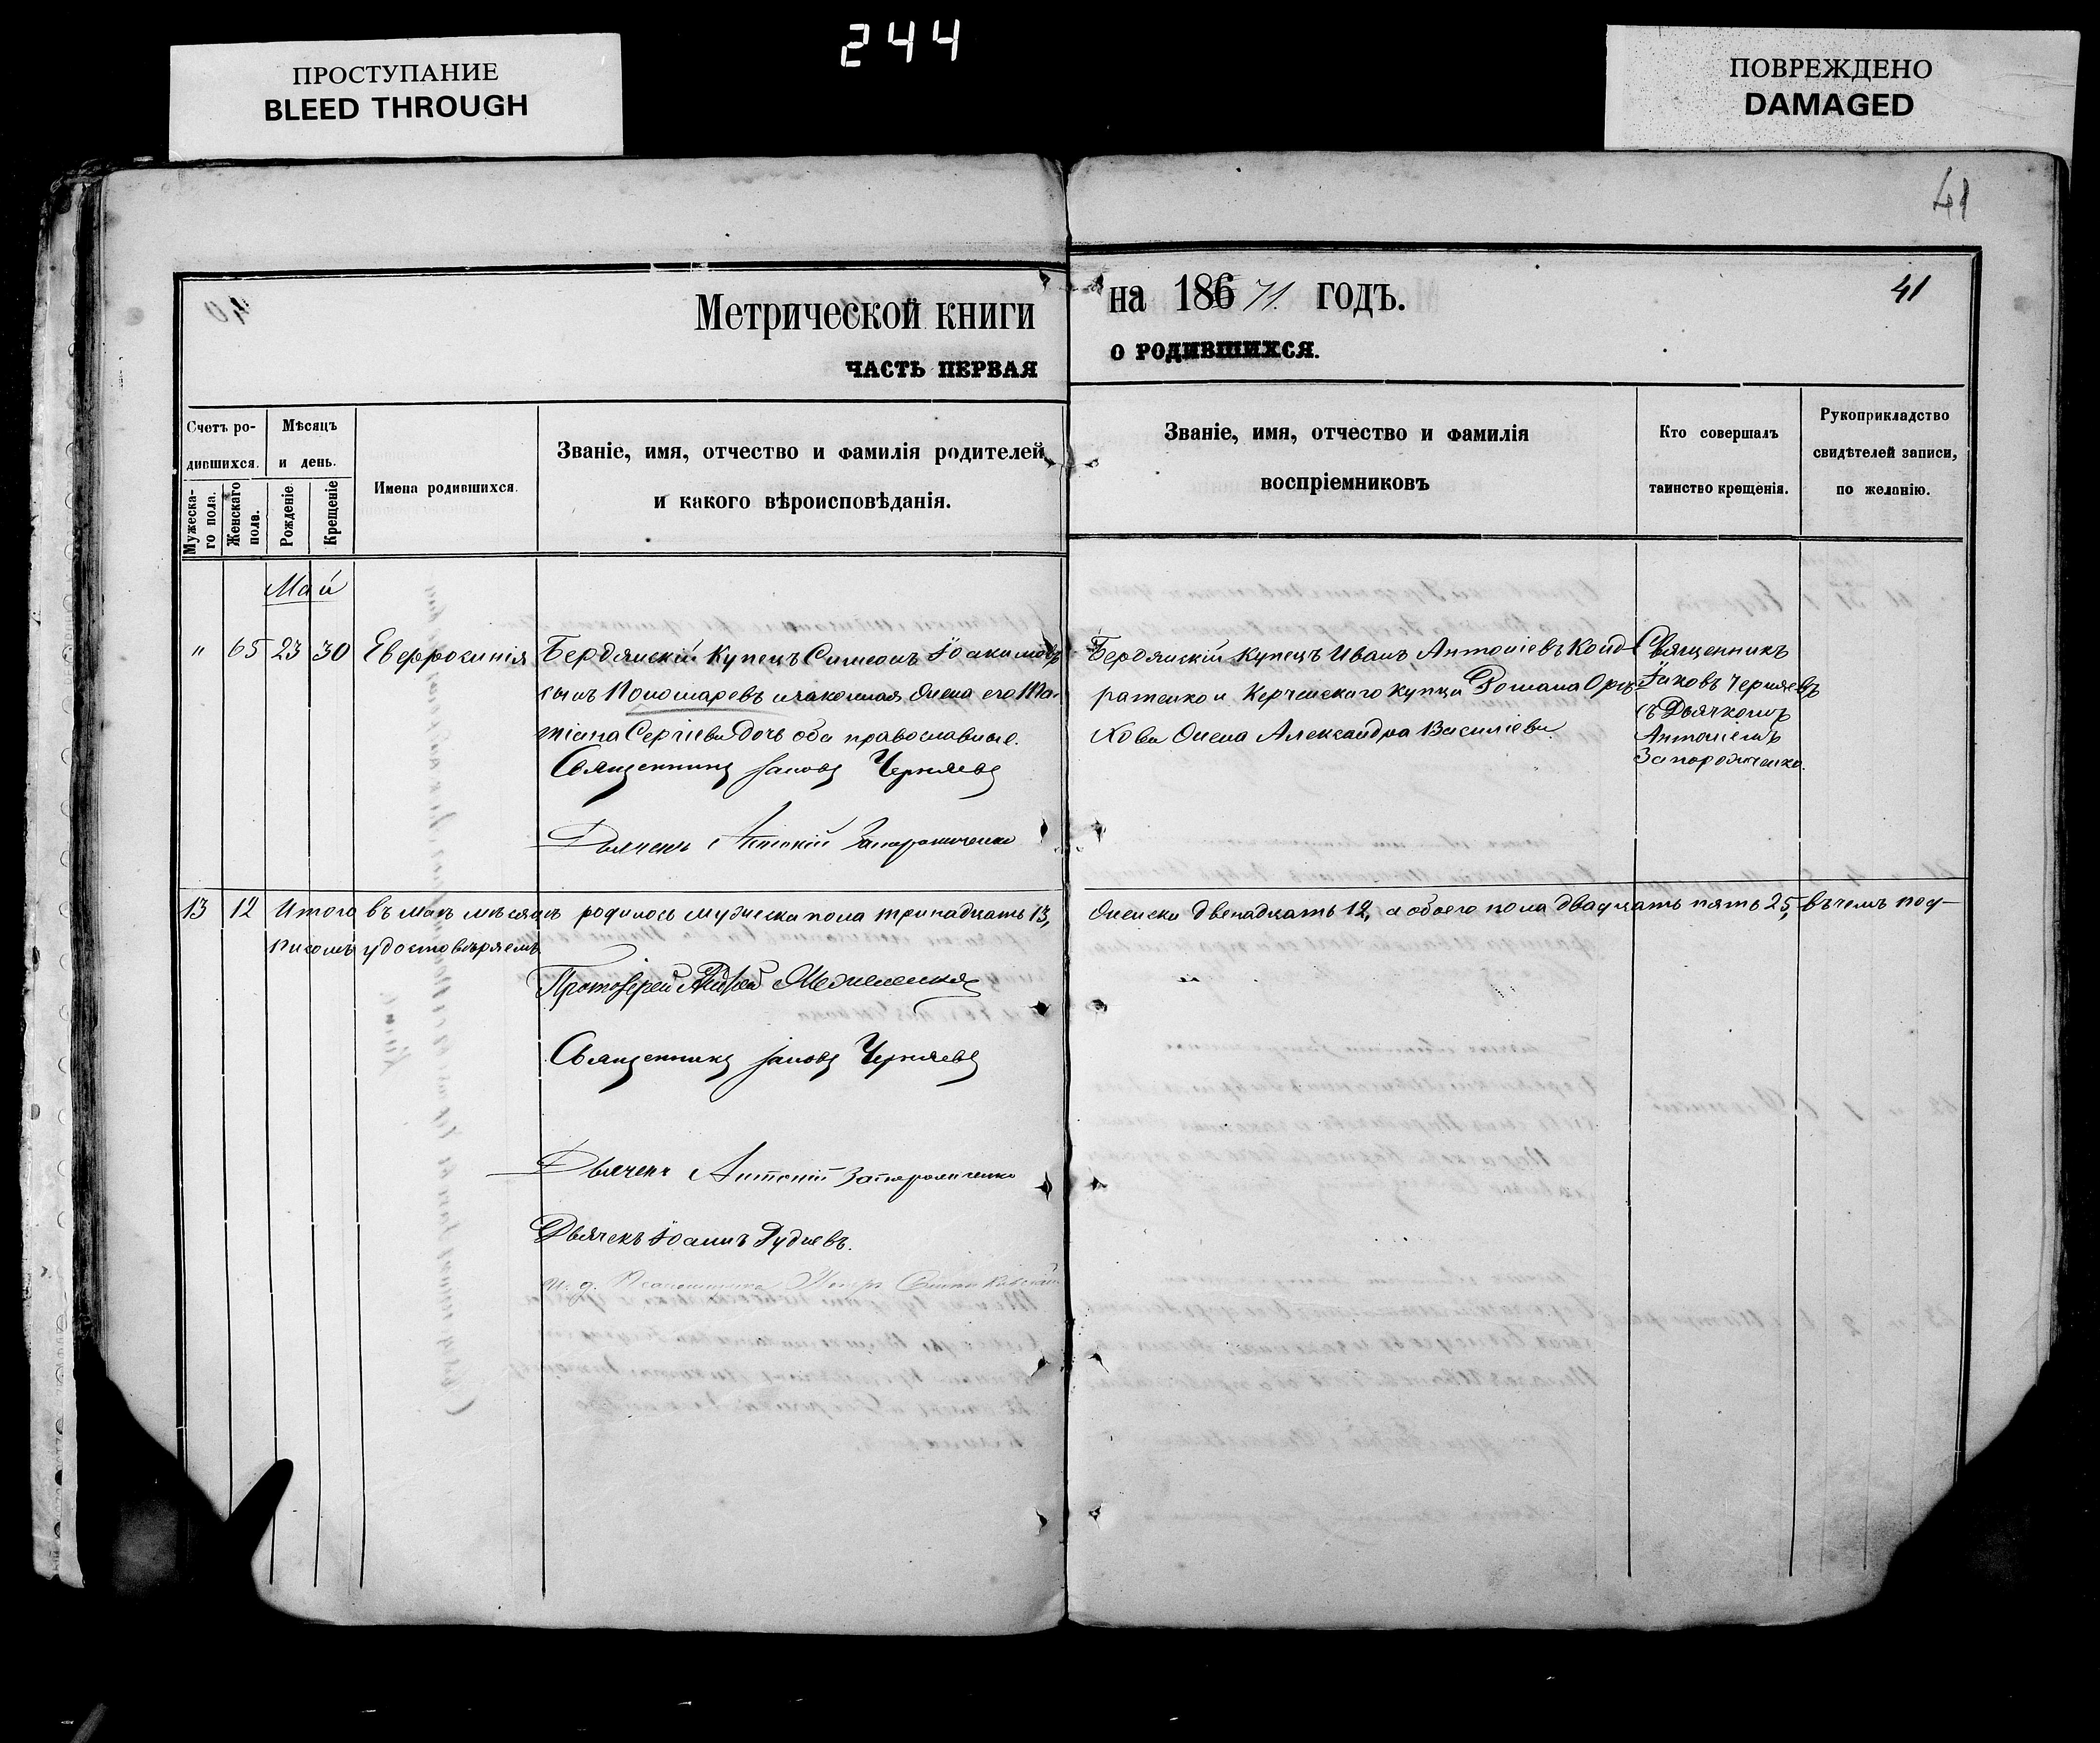 244
ПРОСТУПАНИЕ
BLEED THROUGH
ПОВРЕЖДЕНО
DAMAGED
41
Метрической книги
ЧАСТЬ ПЕРВАЯ
на 186 71. годъ.
о РОДИВШИХСЯ.
41
Счетъ ро-
дившихся.
Мужеска-
го пола.
Женскаго
пола.
Мѣсяцъ
и день.
Рожденіе.
Крещеніе
Имена родившихся.
Званіе, имя, отчество и фамилія родителей
и какого вѣроисповѣданія.
Званіе, имя, отчество и фамилія
воспріемниковъ
Кто совершалъ
таинство крещенія.
Рукоприкладство
свидѣтелей записи,
по желанію.
Май
" 65 23 30 Евфросинія
Бердянскій Купецъ Симеонъ Іоакимовъ
сынъ Пономаревъ и законная жена его Та-
тіана Сергіева дочь оба православные.
Священникъ Іаковъ Черняевъ
Дьячекъ Антоній Запорожченко
Бердянскій Купецъ Иванъ Антоніевъ Конд-
ратенко и Керченскаго Купца Романа
кова жена Александра Василіева.
Священникъ
Іаковъ Черняевъ
съ Дьячкомъ
Антоніемъ
Запорожченко.
13 12 Итого въ маѣ мѣсяцѣ родилось мужеска пола тринадцать 13,
женска двенадцать 12, а обоего пола двадцать пять 25, въ чемъ под-
писомъ удостовѣряемъ
Протоіерей Андрей
Священникъ Іаковъ Черняевъ
Дьячекъ Антоній Запорожченко
Дьячекъ Іоаннъ Рудневъ.
и. д. Псаломщика Петръ